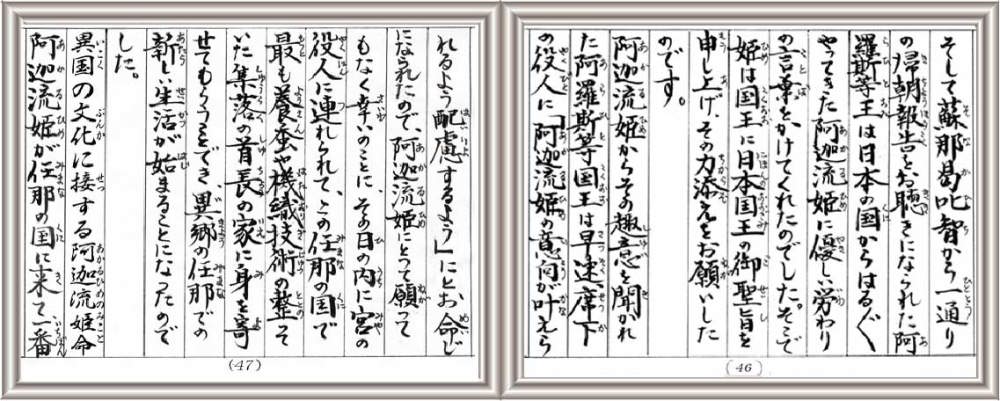 そして蘇那曷叱智から一通り
の帰朝報告をお聴きになられた阿
羅斯等王は日本の国からはる〲
やってきた阿迦流姫に優しい労わり
の言葉をかけてくれたのでした。そこで
姫は国王に日本国王の御聖旨を
申し上げ、その力添えをお願いした
のです。
阿迦流姫からその趣意を聞かれ
た阿羅斯等国王は早速、席下
の役人に「阿迦流姫の意向が叶えら
(46)
れるよう配慮するよう」にとお命じ
になられたので、阿迦流姫にとって願って
もなく幸いのことに、その日の内に宮の
役人に連れられて、この任那の国で
最も養蚕や機織技術の整って
いた集落の首長の家に身を寄
せてもらうことができ、異郷の任那での
新しい生活が始まることになったので
した。
異国の文化に接する阿迦流姫命
阿迦流姫が任那の国に来て一番
(47)